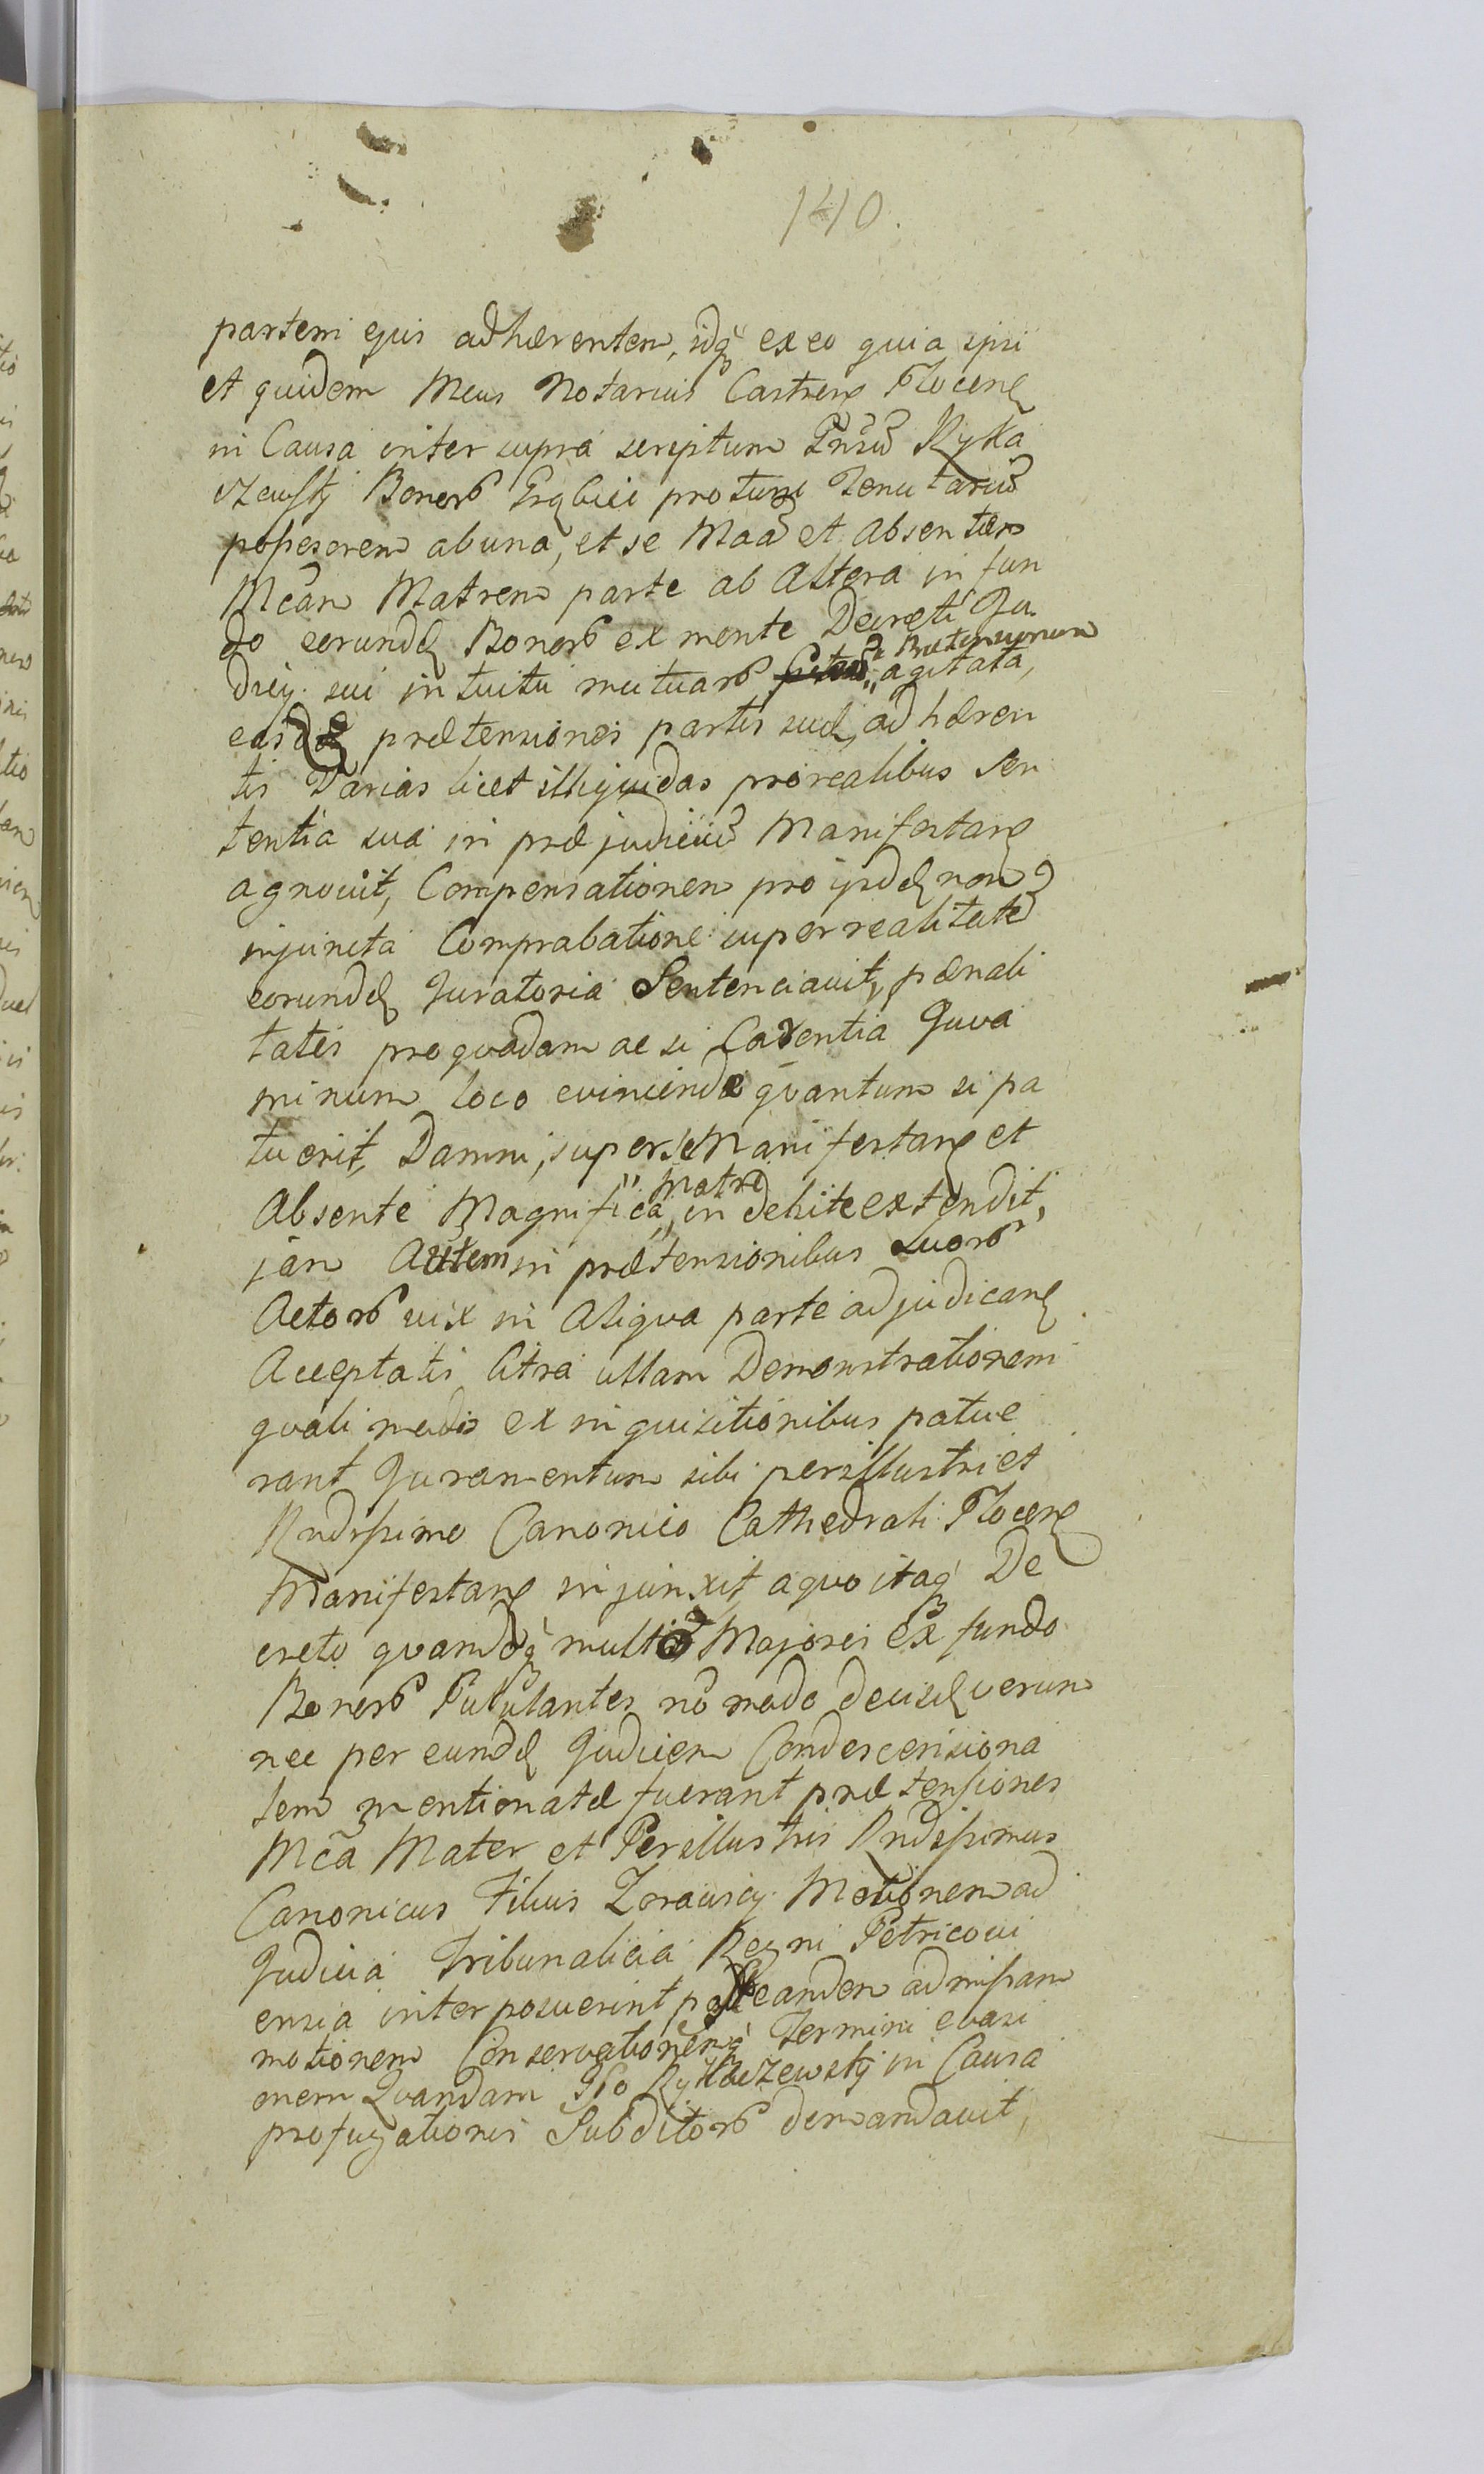 140.
partem ejus adhærentem, idq́ ex eo quia ipsi
et quidem Mcus Notarius Castren Plocen
in Causa inter supra scriptum Gnsũ Rykа
czewskj Bonorũ Grębice protunc Tenutariũ
possessorem ab una, et se Maã et Absentem
Mcãm Matrem parte ab Altera in fun
do eorundę Bonorũ ex mente Decreti Ju
dicy sui intuitu mutuarũ " Prætensionum agitata,
easdę prætensiones partis suæ, adhæren
tis Varias licet illiquidas pro realibus Sen
tentia sua in præjudiciũ Manifestan
agnovit, Compensationem pro ijsdę non
injuncta Comprobatione super realitate
eorundę Juratoria Sentenciavit, pænali
tates pro quadam ac si Carentia Jura
minum loco evincendæ quantum si pa
tuerit, Damni, super se Manifestan et
Absente Magnifica " Matre in debite extendit,
jam Autem in prætensionibus Suorũ
Actorũ vix in Aliqua parte adjudican
Acceptatis Citra ullam Demonstrationem
quali modo ex inquisitionibus patue
rant Juramentum sibi perillustri et
Rndissimo Canonico Cathedrali Plocen
Manifestan injunxit, a quo itaq́ De
creto quandoq́ multo Majores ex fundo
Bonorũ Pullulantes nõ modo decisæ verum
nec per eundę Judicem Condescensiona
lem mentionatæ fuerant prætensiones
Mcã Mater et Perillustris Rndissimus
Canonicus Filius Zorawscy Motionem ad
Judicia Tribunalicia Regni Petricovi
ensia interposuerint post eandem admissam
motionem Conservationemq́ Termini evasi
onem Quandam Gso Rykaczewskj in Causa
profugationis Subditorũ demandavit,